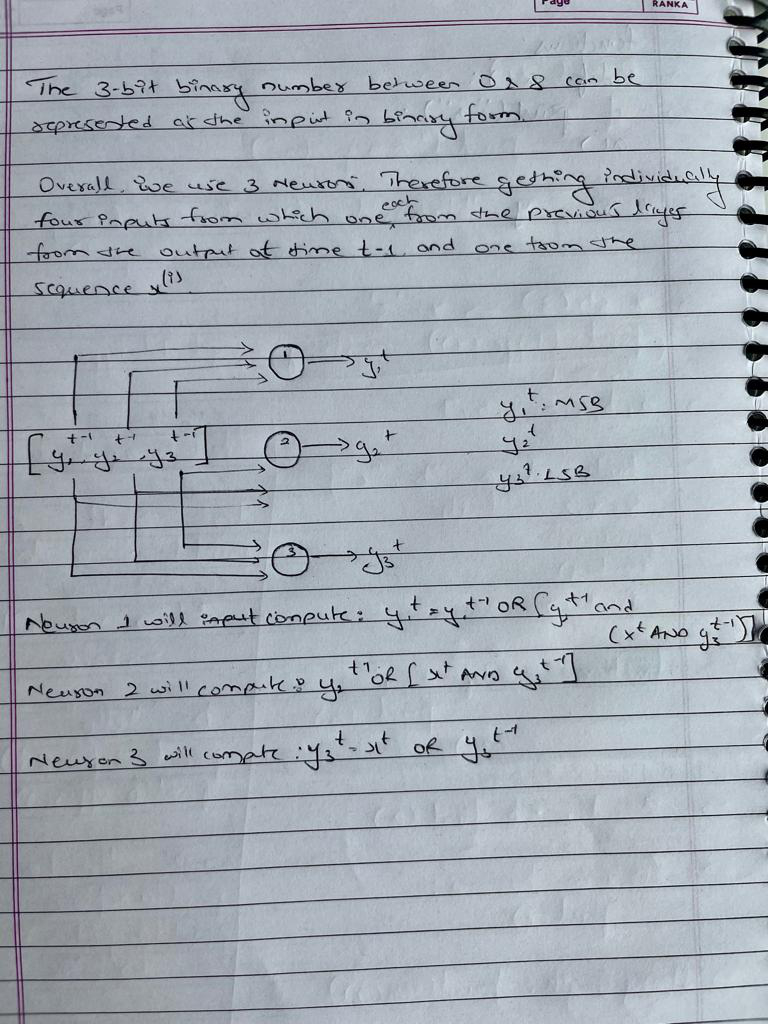 Page
RANKA
The 3-bit binary number between 0 & 8 can be
represented as the input in binary form.
Overall, we use 3 Neurons. Therefore getting individually
four inputs from which one each from the previous layer
from the output at time t-1 and one from the
sequence x^(i).
1 → y₁^t
[y₁^t-1, y₂^t-1, y₃^t-1]
2 → y₂^t
3 → y₃^t
y₁^t: MSB
y₂^t
y₃^t: LSB
Neuron 1 will input compute: y₁^t = y₁^t-1 OR [y^t-1 and
(x^t AND y₃^t-1)]
Neuron 2 will compute: y₂^t-1 OR [x^t AND y₃^t-1]
Neuron 3 will compute: y₃^t = x^t OR y₃^t-1